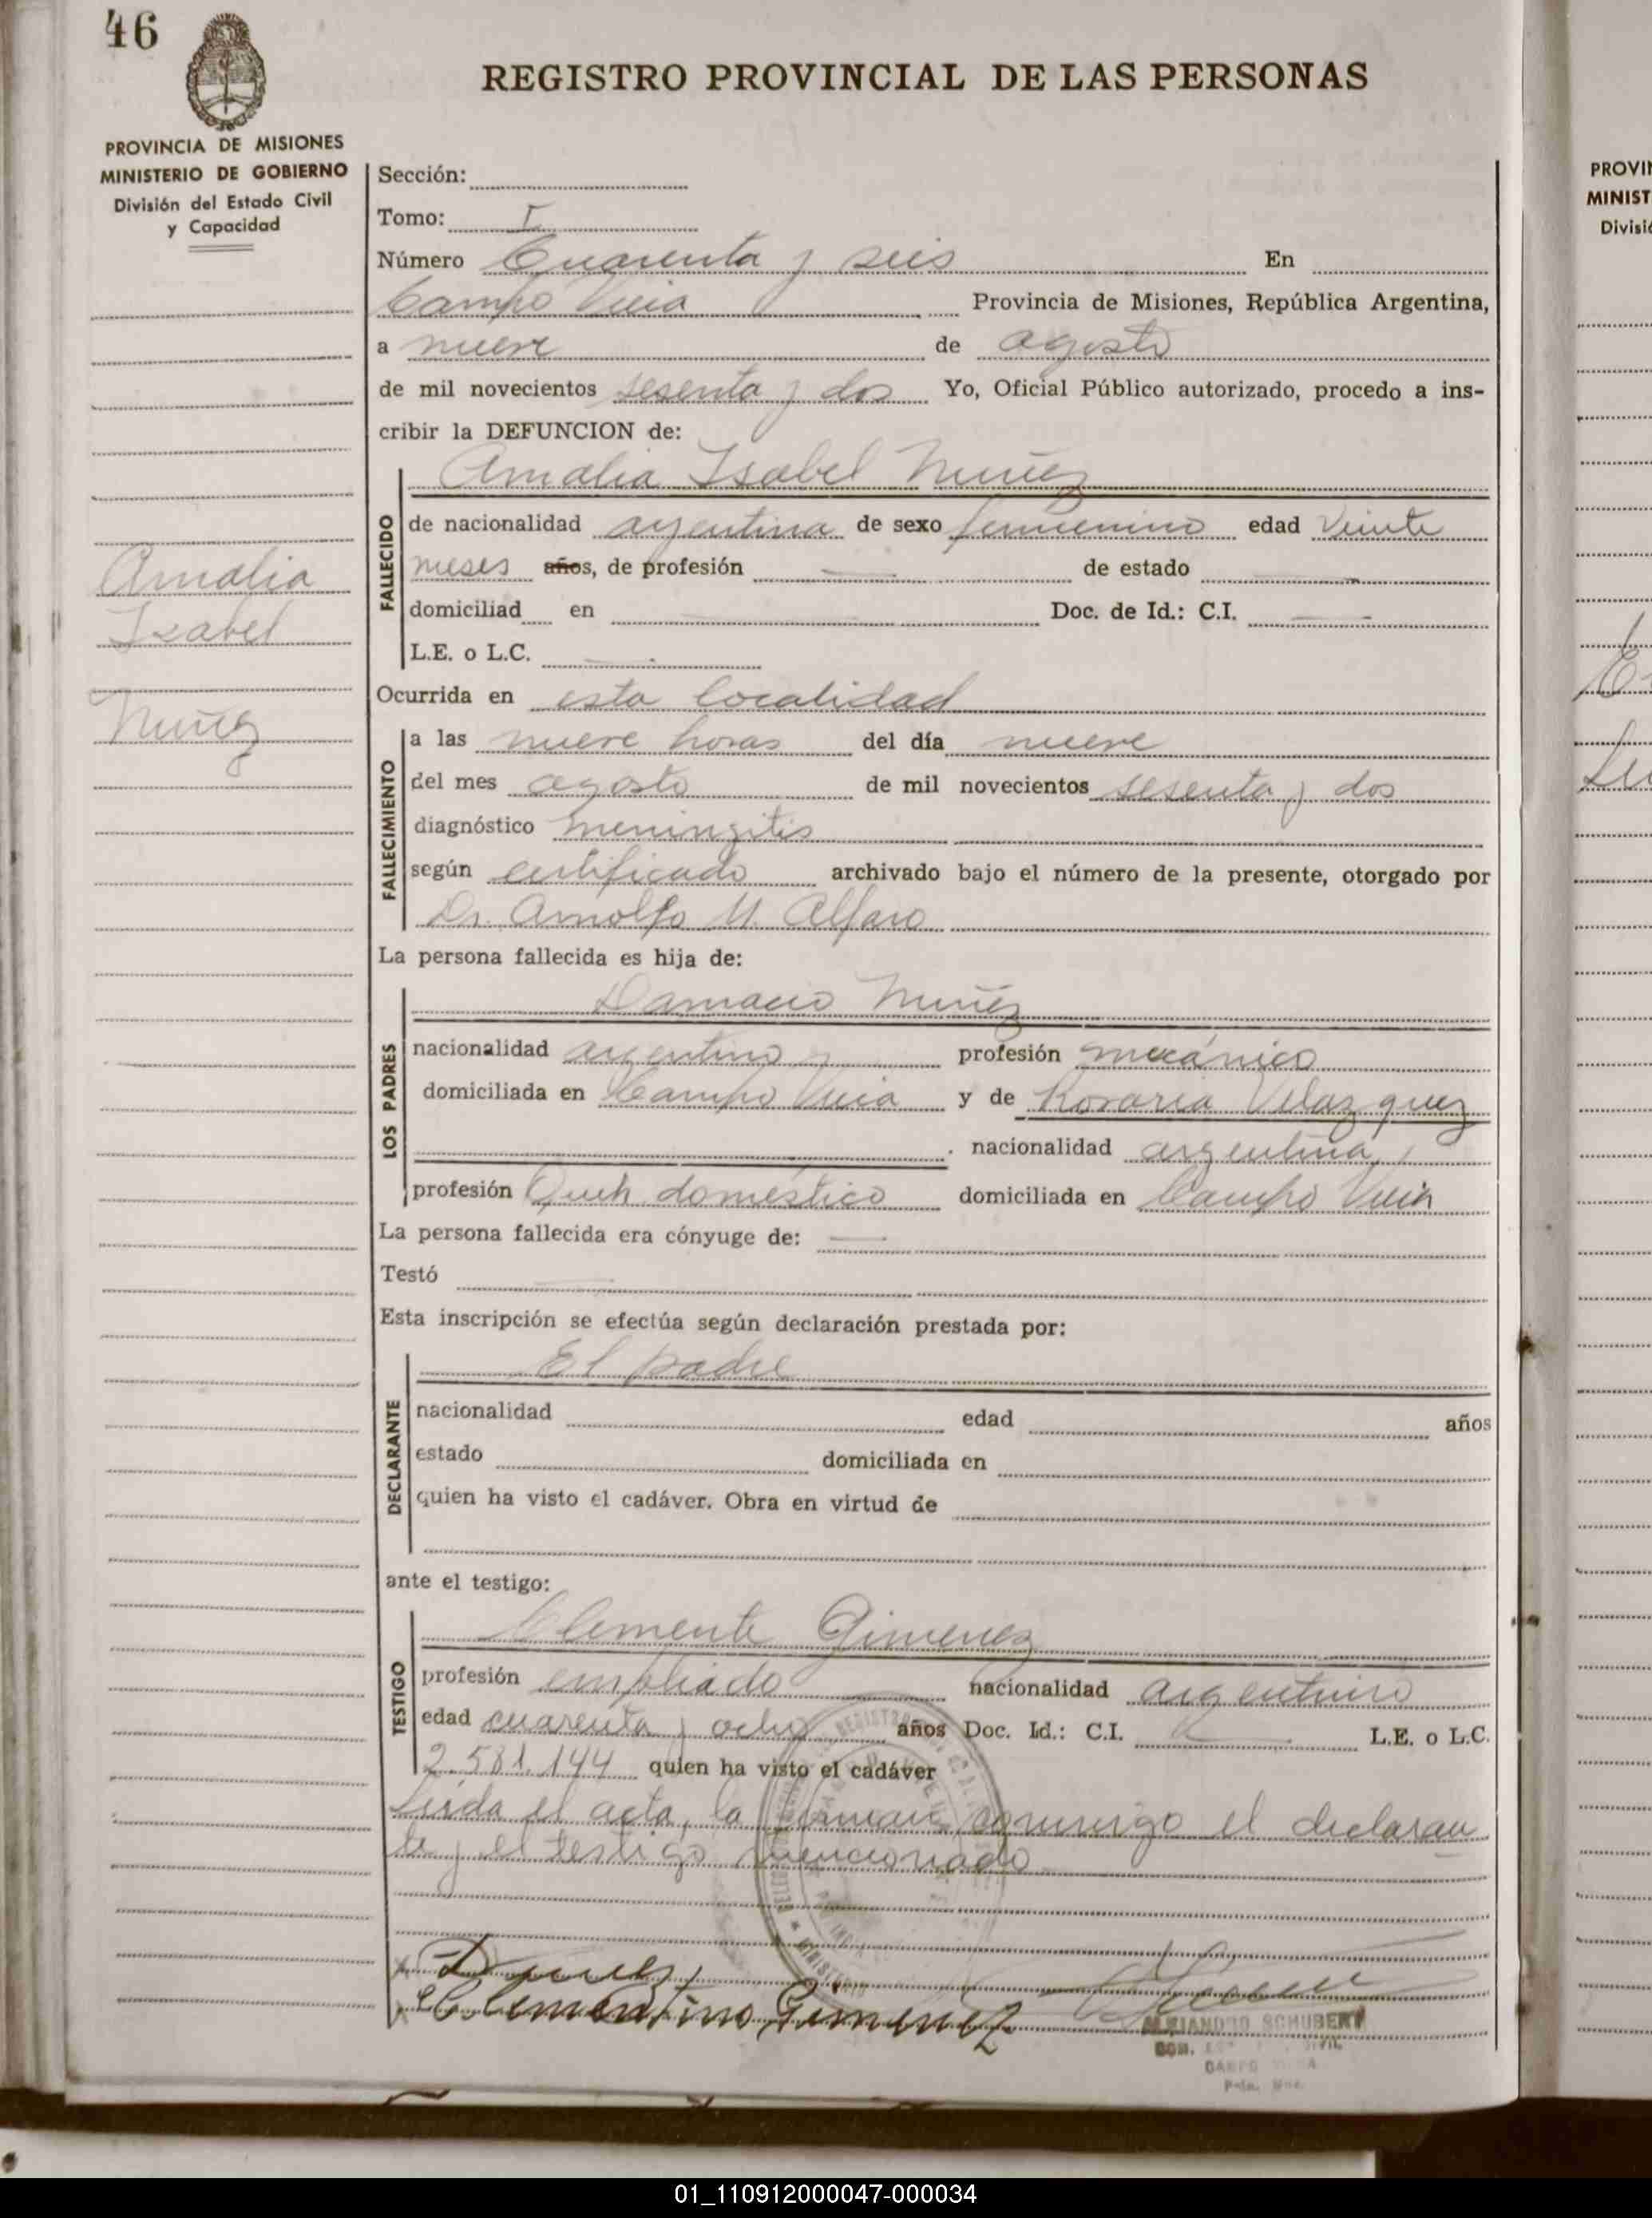 46
REGISTRO PROVINCIAL DE LAS PERSONAS
PROVINCIA DE MISIONES
MINISTERIO DE GOBIERNO
División del Estado Civil
y Capacidad
Amalia
Isabel
Nuñez
Sección:
Tomo: I
Número Cuarenta y seis En
Campo Viera Provincia de Misiones, República Argentina,
a nueve de agosto
de mil novecientos sesenta y dos Yo, Oficial Público autorizado, procedo a ins-
cribir la DEFUNCION de:
Amalia Isabel Nuñez
FALLECIDO
de nacionalidad argentina de sexo femenino edad Veinte
meses años, de profesión — de estado —
domiciliad en — Doc. de Id.: C.I. —
L.E. o L.C. —
Ocurrida en esta localidad
FALLECIMIENTO
a las nueve horas del día nueve
del mes agosto de mil novecientos sesenta y dos
diagnóstico meningitis
según certificado archivado bajo el número de la presente, otorgado por
Dr. Arnolfo M. Alfaro
La persona fallecida es hija de:
LOS PADRES
Damacio Nuñez
nacionalidad argentino profesión mecánico
domiciliada en Campo Viera y de Rosaria Velazquez
nacionalidad argentina,
profesión Queh domestico domiciliada en Campo Viera
La persona fallecida era cónyuge de: —
Testó —
Esta inscripción se efectúa según declaración prestada por:
DECLARANTE
El padre
nacionalidad edad años
estado domiciliada en
quien ha visto el cadáver. Obra en virtud de
ante el testigo:
TESTIGO
Clemente Gimenez
profesión empleado nacionalidad argentino
edad cuarenta y ocho años Doc. Id.: C.I. — L.E. o L.C.
2.581.144 quien ha visto el cadáver
Leida el acta, la firman conmigo el declaran
te y el testigo mencionado
Clementino Gimenez
ALEJANDRO SCHUBERT
PROVIN
MINIST
Divisió
01_110912000047-000034